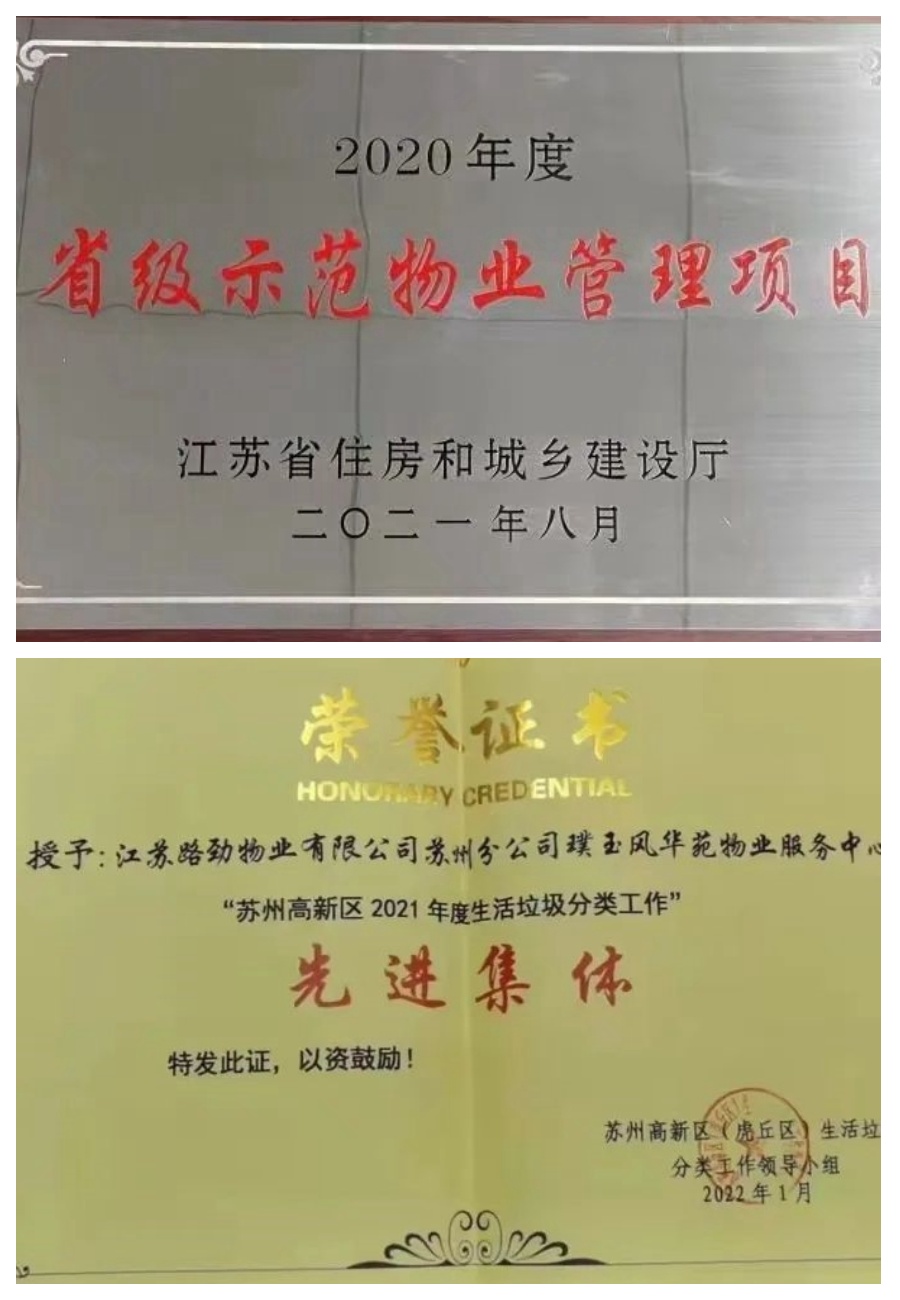 2020年度
省级示范物业管理项目
江苏省住房和城乡建设厅
二〇二一年八月
荣誉证书
HONORARY CREDENTIAL
授予:江苏路劲物业有限公司苏州分公司璞玉风华苑物业服务中心
“苏州高新区2021年度生活垃圾分类工作”
先进集体
特发此证，以资鼓励！
苏州高新区（虎丘区）生活垃
分类工作领导小组
2022年1月